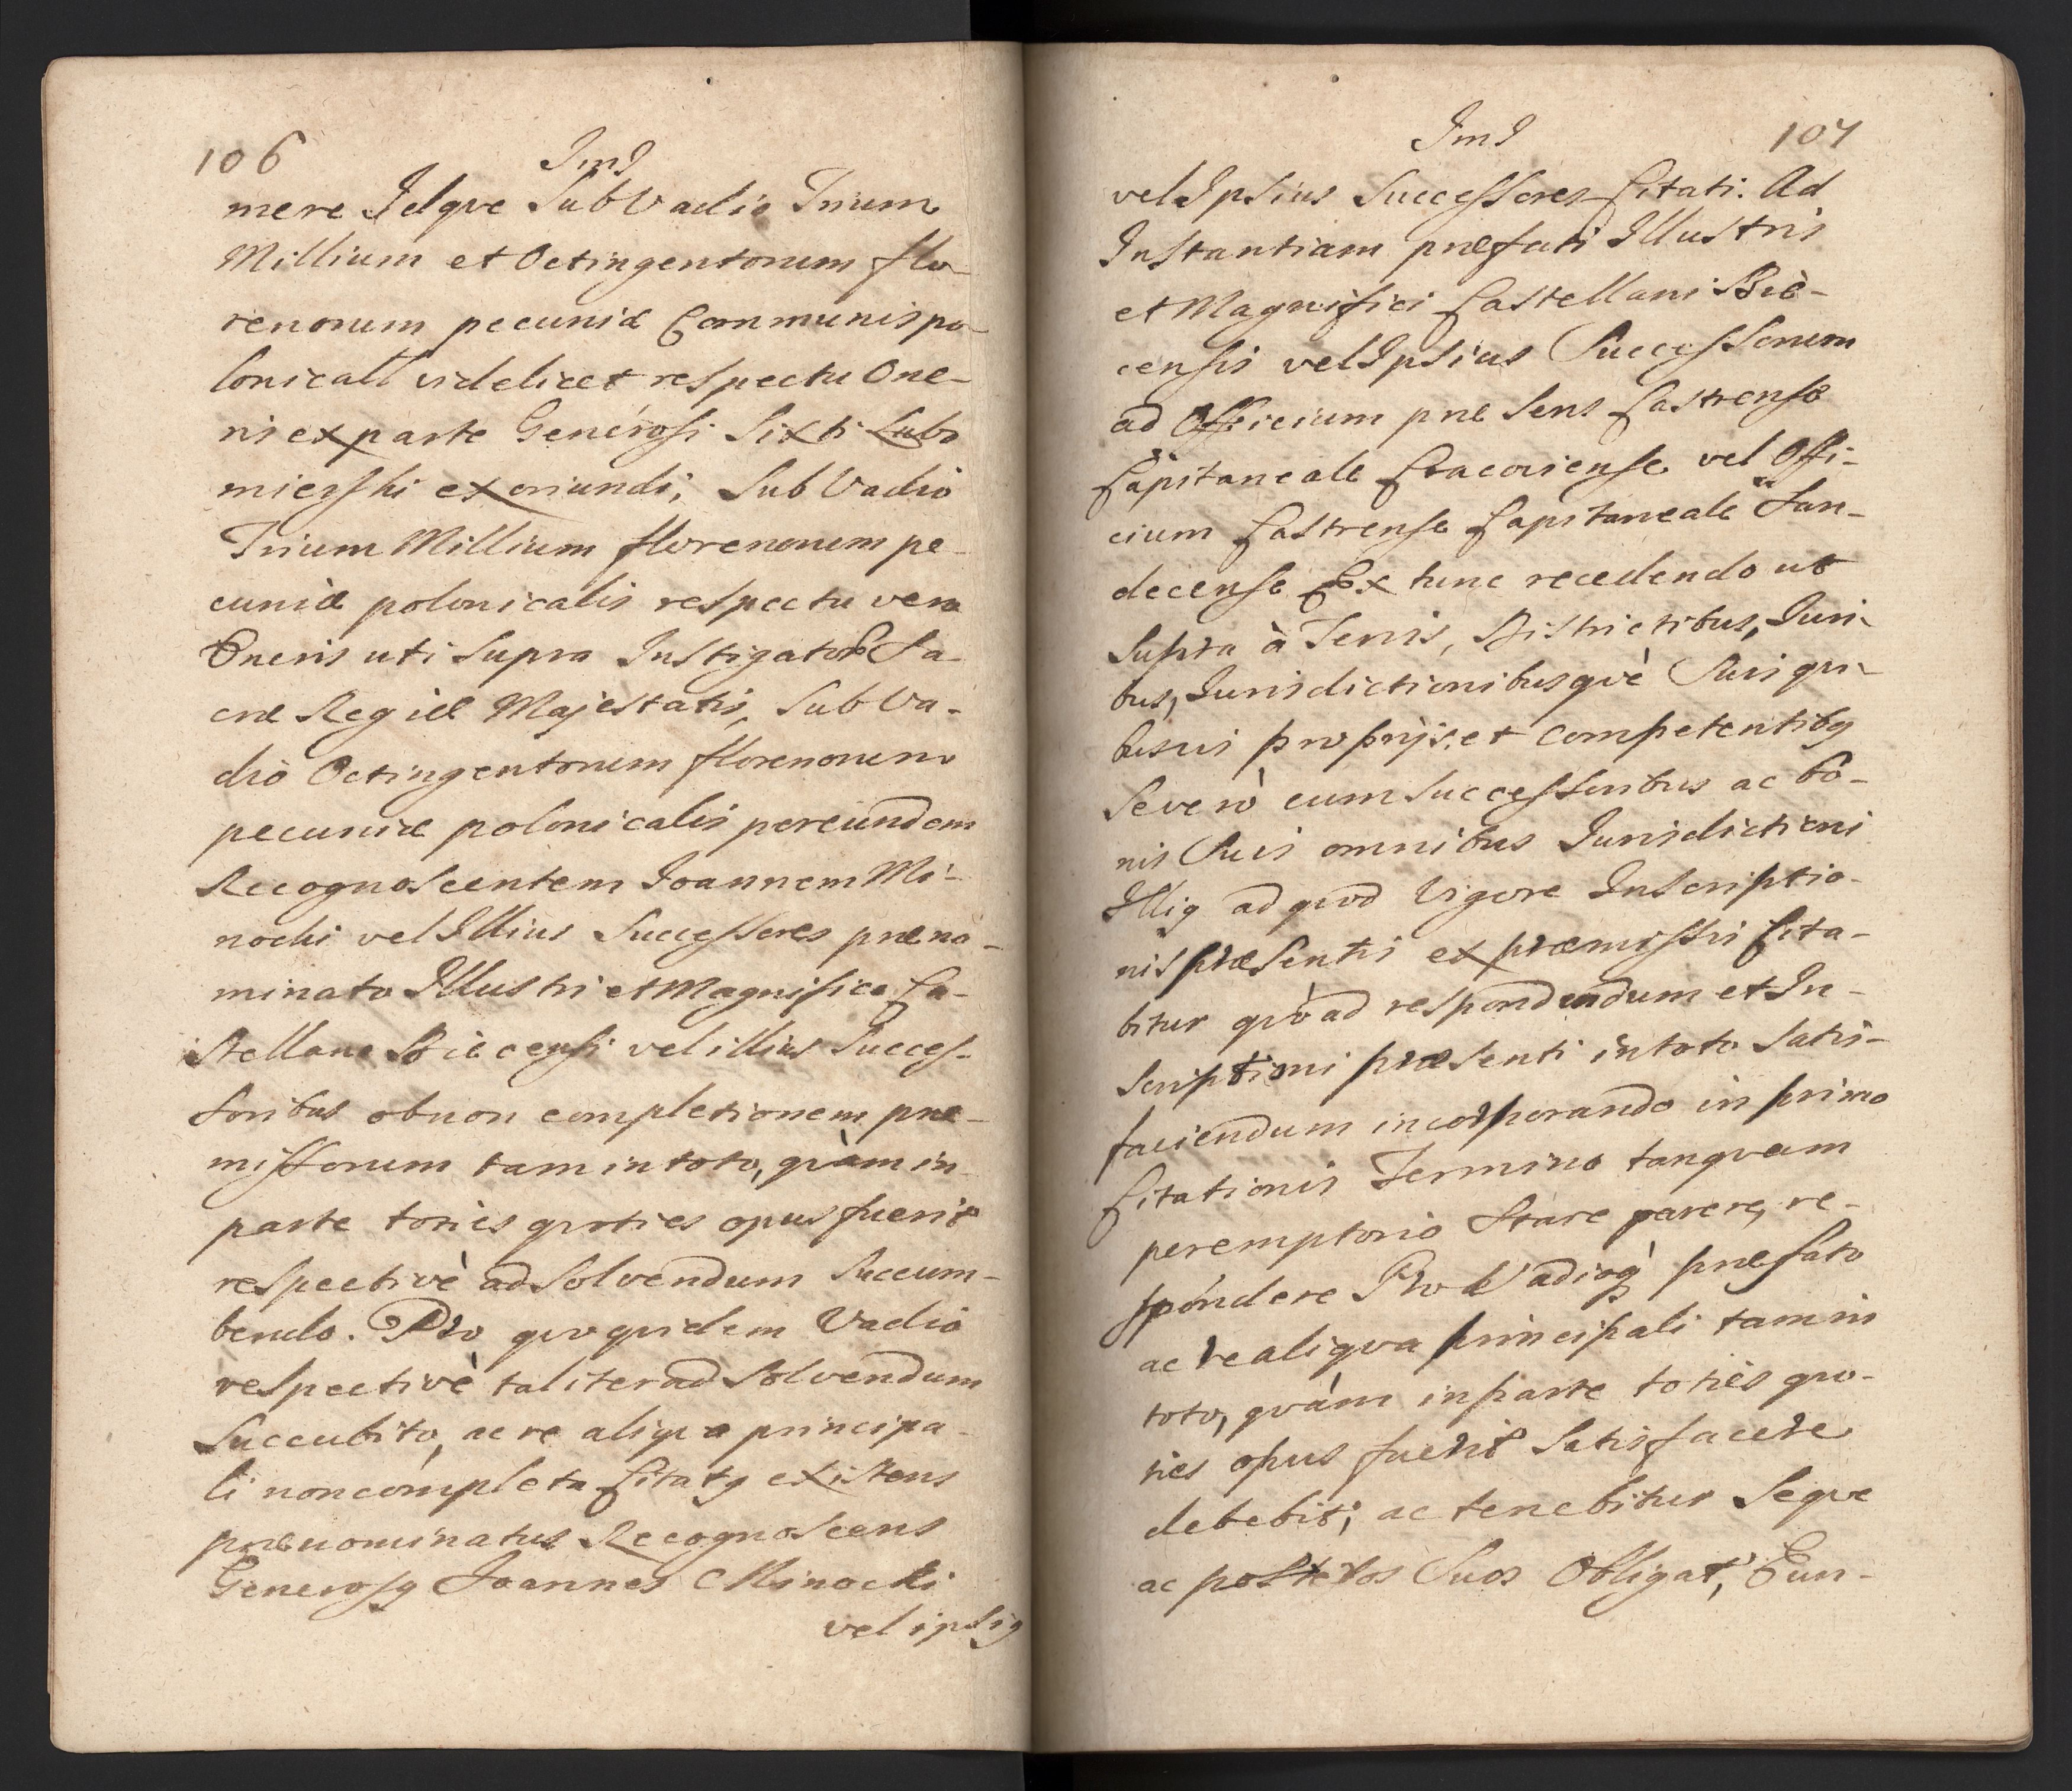 106
JmJ
mere Idqve Sub Vadio Trium
Millium et Octingentorum flo-
renorum pecuniæ Communis po-
lonicall videlicet respectu One-
ris ex parte Generosi Sixti Lubo
mierski exoriundi, Sub Vadio
Trium Millium florenorum pe-
cuniæ polonicalis respectu vero
Oneris uti Supra Instigatoris Sa-
cræ Regiæ Majestatis, Sub Va-
dio Octingentorum florenorum
pecuniæ polonicalis per eundem
Recognoscentem Joannem Mi-
nocki vel Illius Successores præno-
minato Illustri et Magnifico Ca-
stellano Biecensi vel illius Succes-
soribus ob non completionem præ-
missorum tam in toto, qvàm in
parte toties qvoties opus fuerit
respectivè ad Solvendum Succum-
bendo. Pro qvo qvidem Vadio
respectivè taliter ad Solvendum
Succubito, ac re aliqva principa-
li non completa Citatq existens
prænominatus Recognoscens
Generosq Joannes Minocki
vel ipsiq
JmJ
107
vel Ipsius Successores Citati. Ad
Instantiam præfati Illustris
et Magnifici Castellani Bie-
censis vel Ipsius Successorum
ad Officium præsens Castrense
Capitaneale Cracoviense vel Offi-
cium Castrense Capitaneale San-
decense Ex tunc recedendo ut
Supra à Terris, Districtibus, Juri-
bus, Jurisdictionibusqvè Suis qvi-
busvis proprijs et competentibq
Severò cum Successoribus ac bo-
nis Suis omnibus Jurisdictioni
Illiq ad qvod Vigore Inscriptio-
nis præsentis ex præmissis Cita-
bitur qvò ad respondendum et In-
scriptioni præsenti in toto Satis-
faciendum incorporando in primo
Citationis Termino tanqvam
peremptorio Stare parere, re-
spondere Pro Vadioq præfato
ac re aliqva principali tam in
toto, qvàm in parte toties qvo-
ties opus fuerit Satisfacere
debebit; ac tenebitur Seqve
ac posteros Suos Obligat, Eun-